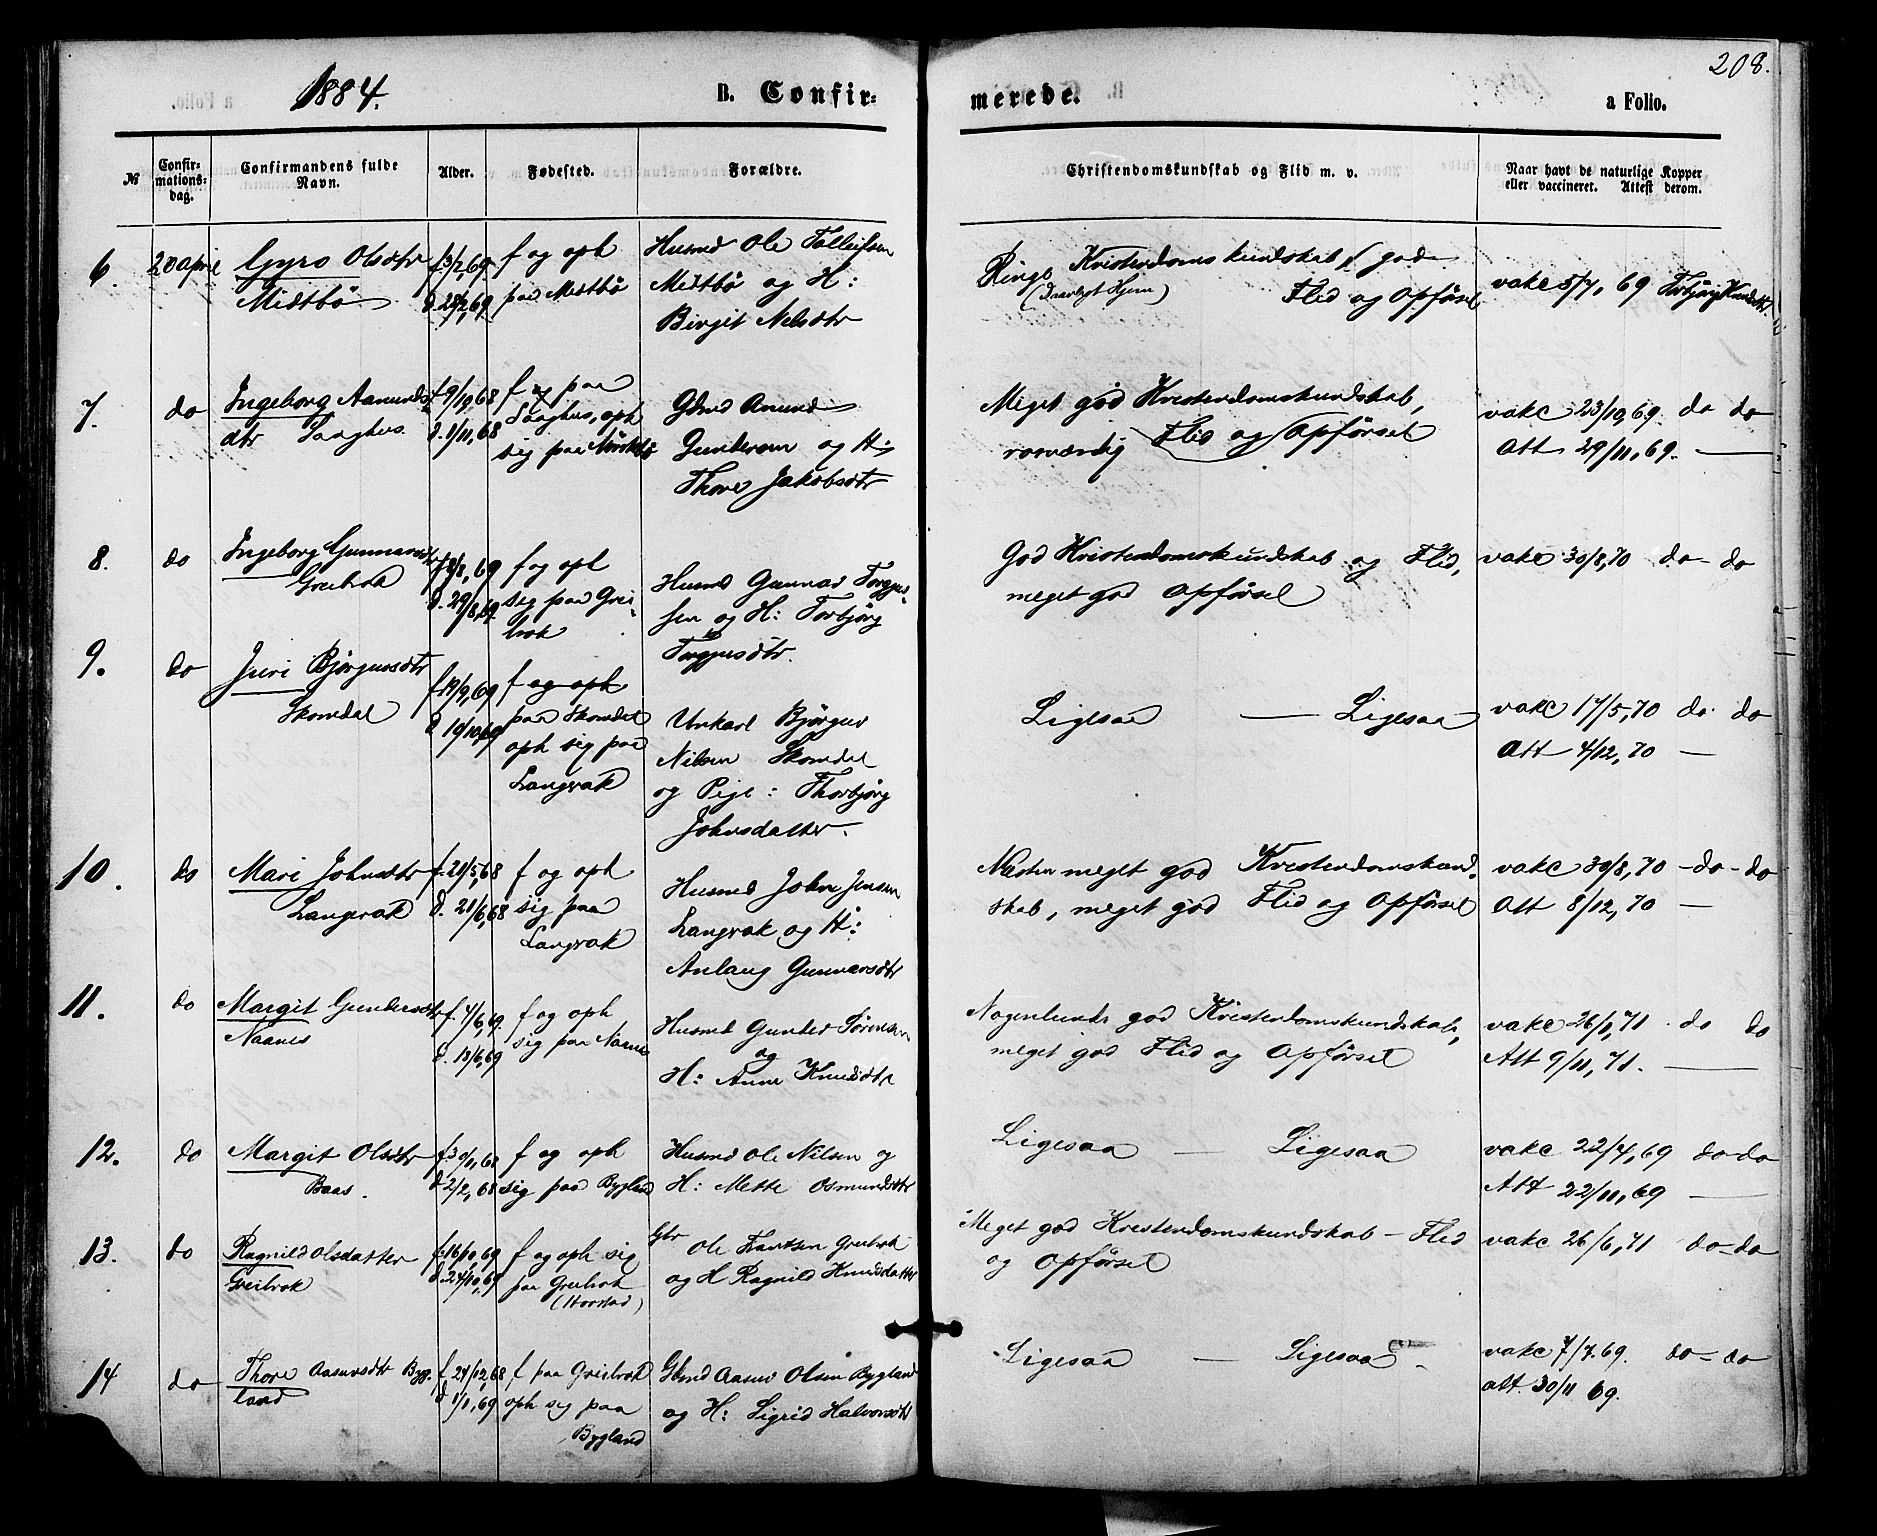 208.
1884.
B. Confir-
merede.
a Folio.
№
Confir-
mations-
dag.
Confirmandens fulde
Navn.
Alder.
Fødested.
Forældre.
Christendomskundskab og Flid m. v.
Naar havt de naturlige Kopper
eller vaccineret. Attest derom.
6. 20 april
Gyro Olsdtr
Midtbø
f. 3/2, 69
d. 28/2, 69
f og oph
paa Midtbø
Husmd Ole Tolleifsen
Midtbø og H:
Birgit Nelsdtr
Ringe Kristendomskundskab, god
(Daarligt Hjem) Flid og Opførsel
vakc 5/7, 69 Torbjørg Knudsdtr.
7. do
Ingeborg Aanunds
dtr Sanghus
f 9/10, 68
d. 1/11, 68
f og paa
Sanghus, oph
sig paa
Gbmd Anund
Gundersen og H:
Thore Jakobsdtr
Meget god Kristendomskundskab,
rosværdig Flid og Opførsel
vakc 23/10, 69. do do
Att 29/11, 69. —
8. do
Ingeborg Gunnarsdtr
Greibrok
f 8/8, 69
d. 29/8, 69
f og oph
sig paa Grei-
brok
Husmd Gunnar Torgjus-
sen og H: Torbjørg
Torgjusdtr.
God Kristendomskundskab og Flid,
meget god Opførsel
vakc 30/8, 70 do - do
9. do
Juri Bjørgusdtr
Skomdal
f 19/9, 69
d 19/10, 69
f og oph
paa Skomdal
oph sig paa
Langrak
Unkarl Bjørgus
Nilsen Skomdal
og Pige: Thorbjørg
Johnsdatter.
Ligesaa — Ligesaa
vakc 17/5, 70 do. do
Att 4/12, 70 —
10. do
Mari Johnsdtr
Langrak
f. 20/5, 68
d. 21/6, 68
f og oph
sig paa
Langrak
Husmd John Jensen
Langrak og H:
Anlaug Gunnarsdtr
Næsten meget god Kristendomskund-
skab, meget god Flid og Opførsel
vakc 30/8, 70 - do - do
Att 8/12, 70 —
11. do
Margit Gundersdtr
Naanes
f. 4/6, 69.
d. 13/6, 69
f og oph
sig paa Naanes
Husmd Gunder Sørensen
og
H: Anne Knudsdtr
Nogenlunde god Kristendomskundskab,
meget god Flid og Opførsel
vakc 26/6, 71. do do
Att 9/11, 71. —
12. do
Margit Olsdtr
Baas.
f. 30/1, 68
d 2/2, 68
f og oph
sig paa Bygland
Husmd Ole Nilsen og
H: Mette Osmundsdtr
Ligesaa — Ligesaa
vakc 22/4, 69 do - do
Att 22/11, 69 —
13. do
Ragnild Olsdatter
Greibrok
f. 16/10, 69
d. 24/10, 69
f og oph sig
paa Greibrok
Gbr Ole Greibrok
og H Ragnild Knudsdatter
Meget god Kristendomskundskab - Flid
og Opførsel
vakc 26/6, 71 do - do
14 do
Thore Aasmsdtr Byg-
land
f 24/12, 68
d 1/1, 69
f paa Greibrok
oph sig paa
Bygland
Gbmd Olsen Bygland
og H: Sigrid Halvorsdtr
Ligesaa — Ligesaa
vakc 7/7. 69. do - do
att. 30/11 69.